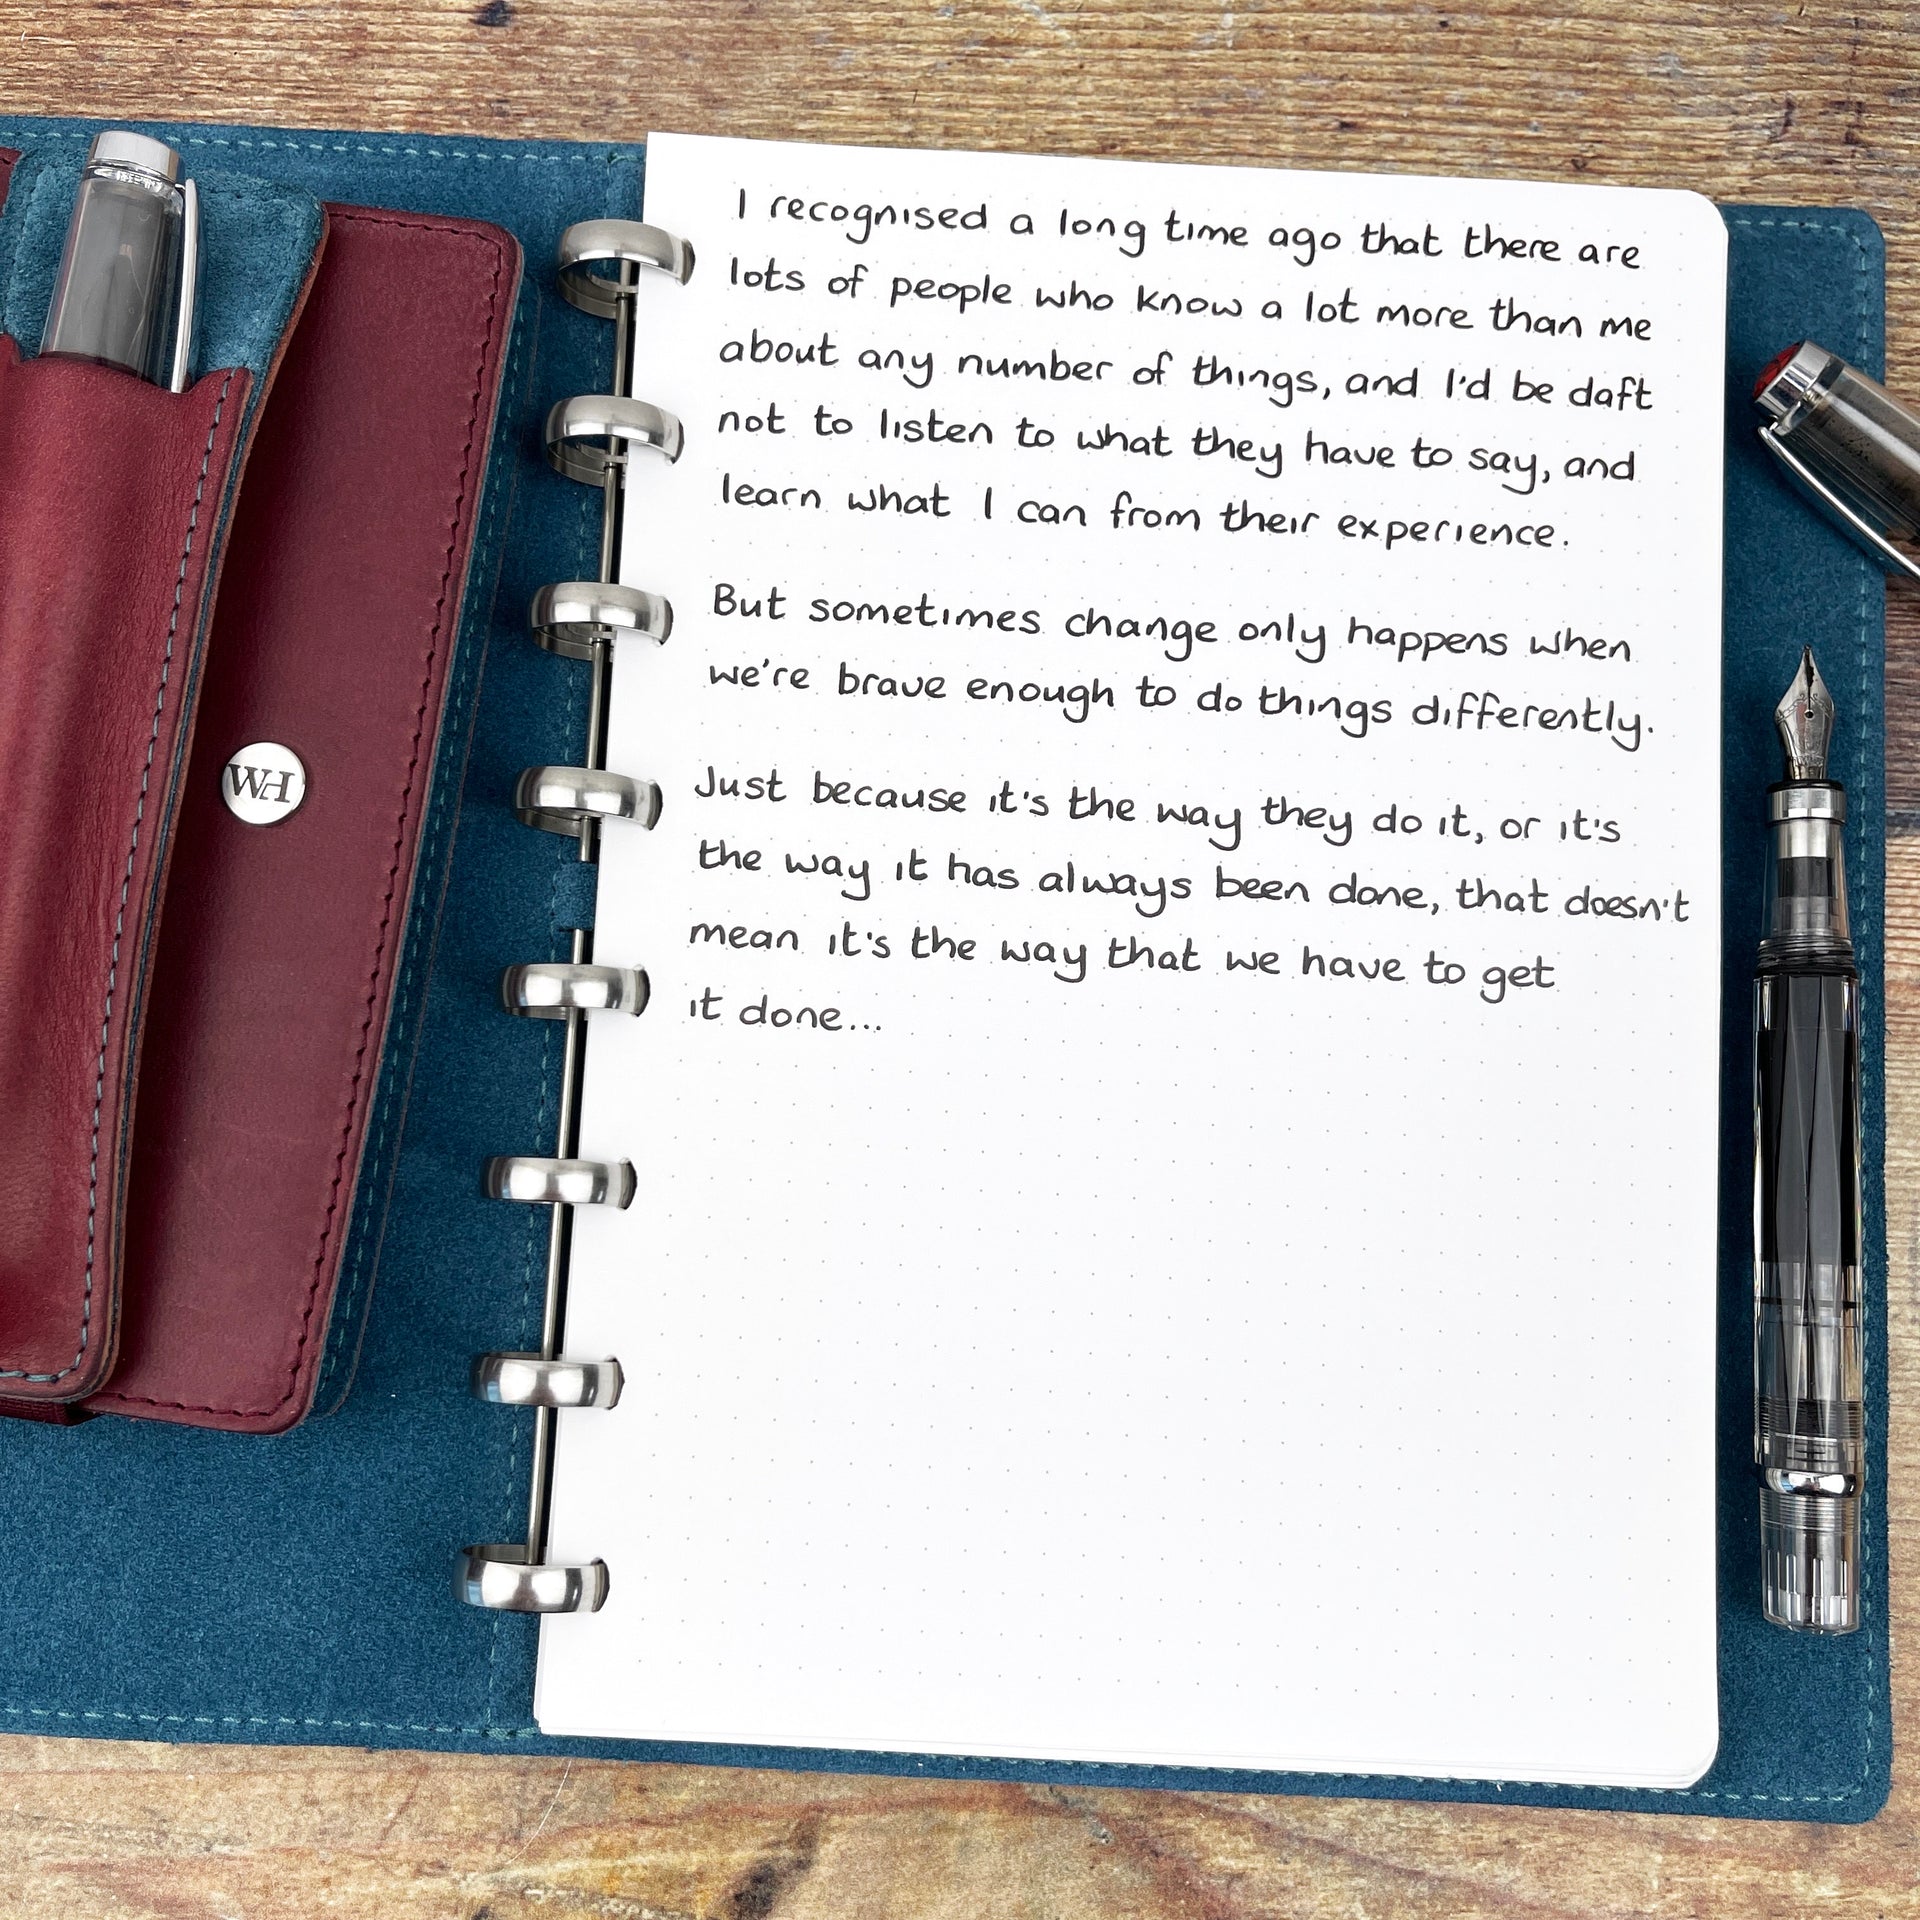 I recognised a long time ago that there are
lots of people who know a lot more than me
about any number of things, and I'd be daft
not to listen to what they have to say, and
learn what I can from their experience.
But sometimes change only happens when
we're brave enough to do things differently.
Just because it's the way they do it, or it's
the way it has always been done, that doesn't
mean it's the way that we have to get
it done...
WH